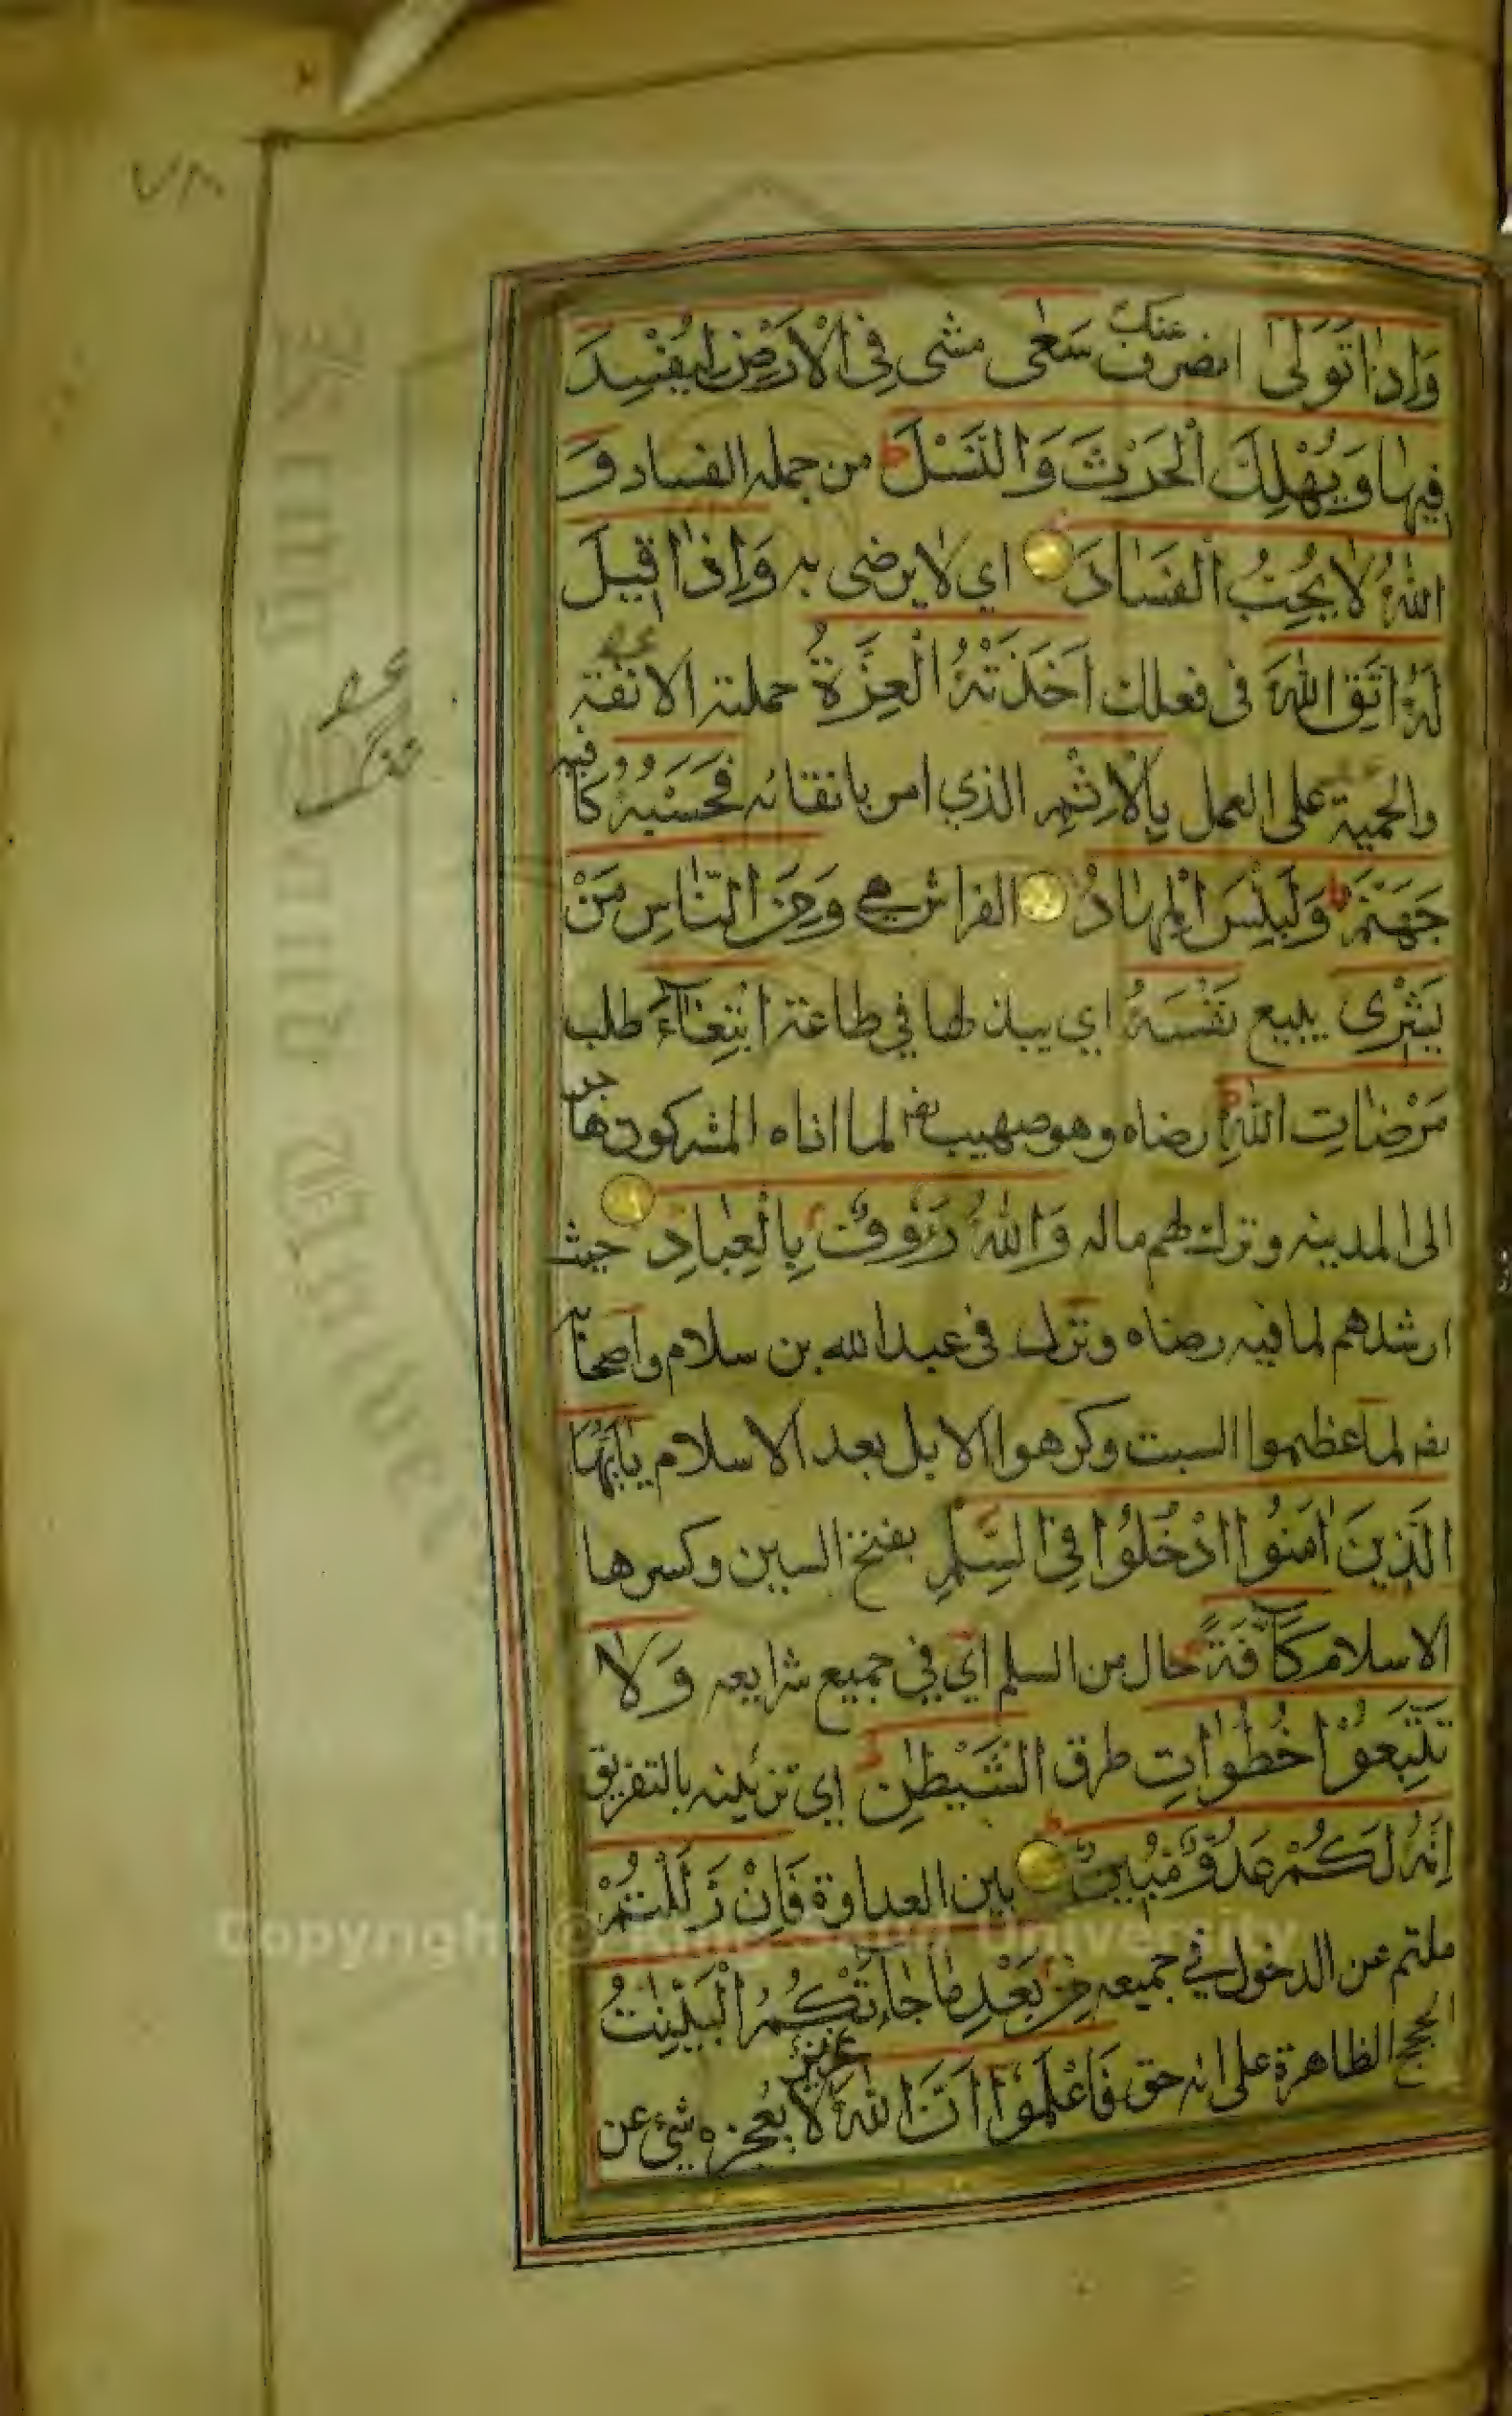 ٧٨
وَاِذَا تَوَلّٰى انصرف عنك سَعٰى مشى فِي الْاَرْضِ لِيُفْسِدَ
فِيهَا وَيُهْلِكَ الْحَرْثَ وَالنَّسْلَ ط من جمله الفساد وَ
اللهُ لَا يُحِبُّ الْفَسَادَ اي لا يرضى به وَاِذَا قِيلَ
لَهُ اتَّقِ اللهَ فى فعلك اَخَذَتْهُ الْعِزَّةُ حملته الانفة
والحمية على العمل بِالْاِثْمِ الذي امر باتقائه فَحَسْبُهُ كافيه
جَهَنَّمُ ط وَلَبِئْسَ الْمِهَادُ الفراش هي وَمِنَ النَّاسِ مَنْ
يَشْرِى يبيع نَفْسَهُ اي يبذلها في طاعة ابْتِغَآءَ طلب
مَرْضَاتِ اللهِ ط رضاه وهو صهيب لما اذاه المشركون هاجر
الى المدينه وترك لهم ماله وَاللهُ رَؤُوفٌ بِالْعِبَادِ حيث
ارشدهم لما فيه رضاه ونزل فى عبد الله بن سلام واصحابه
لما عظموا السبت وكرهوا الابل بعد الاسلام يَا اَيُّهَا
الَّذِينَ اٰمَنُوا ادْخُلُوا فِي السِّلْمِ بفتح السين وكسرها
الاسلام كَآفَّةً حال من السلم اي في جميع شرايعه وَلَا
تَتَّبِعُوْا خُطُوَاتِ طرق الشَّيْطٰنِ ط اي تزئينه بالتفريق
اِنَّهُ لَكُمْ عَدُوٌّ مُبِينٌ بين العداوة فَاِنْ زَلَلْتُمْ
ملتم عن الدخول في جميعه مِنْ بَعْدِ مَا جَاءَتْكُمُ الْبَيِّنٰتُ
الحجج الظاهرة على انه حق فَاعْلَمُوْا اَنَّ اللهَ عزيز لا يعجزه شئ عن
Copyright © King Saud University